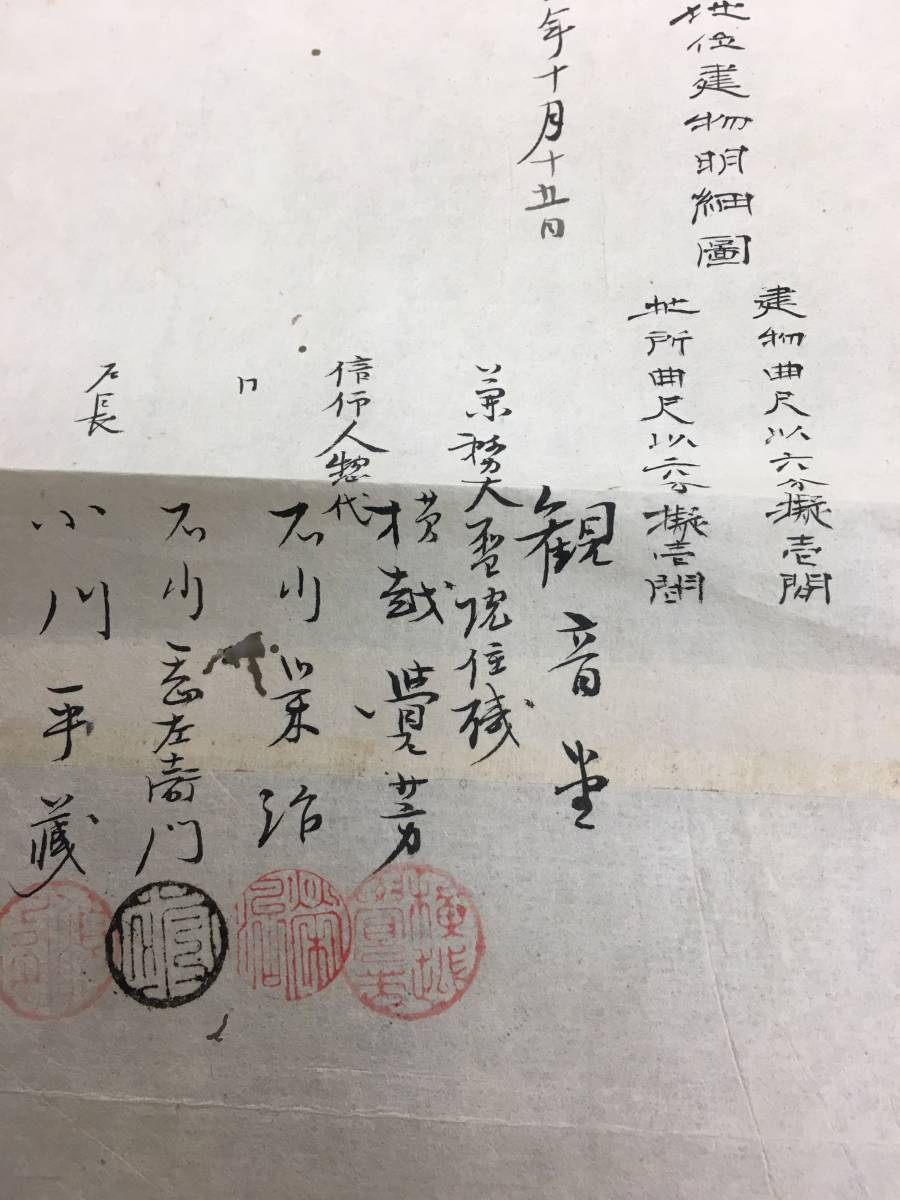 地位建物明細圖
建物曲尺以六分擬壱間
地所曲尺以六分擬壱間
年十月十五日
観音堂
兼務大聖院住職
横越覺芳
信仰人惣代
石川榮治
〃
石川善左衛門
戸長
小川平藏